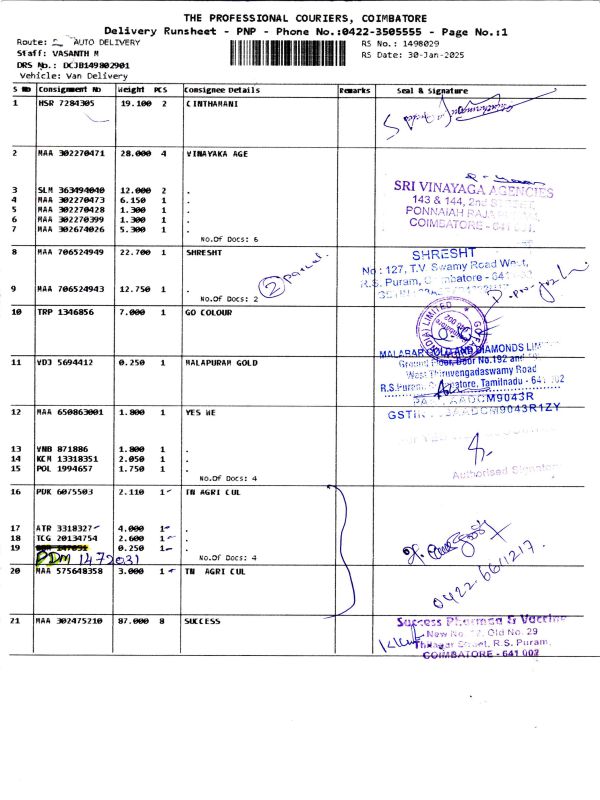 THE PROFESSIONAL COURIERS, COIMBATORE
Delivery Runsheet - PNP - Phone No.:0422-3505555 - Page No.:1
Route: AUTO DELIVERY
RS No.: 1498029
Staff: VASANTH M
RS Date: 30-Jan-2025
DRS No.: DCJB149802901
Vehicle: Van Delivery
S No Consignment No Weight PCS Consignee Details Remarks Seal & Signature
1 HSR 7284305 19.100 2 CINTHAMANI
2 MAA 302270471 28.000 4 VINAYAKA AGE
3 SLM 363494040 12.000 2 .
4 MAA 302270473 6.150 1 .
5 MAA 302270428 1.300 1 .
6 MAA 302270399 1.300 1 .
7 MAA 302674026 5.300 1 .
No.Of Docs: 6
SRI VINAYAGA AGENCIES
143 & 144, 2nd
PONNAIAH RAJA
COIMBATORE - 641
8 MAA 706524949 22.700 1 SHRESHT
2 parcel
9 MAA 706524943 12.750 1 .
No.Of Docs: 2
SHRESHT
No : 127, T.V Swamy Road West,
R.S. Puram,
10 TRP 1346856 7.000 1 GO COLOUR
11 VDJ 5694412 0.250 1 MALAPURAM GOLD
MALABAR GOLD AND DIAMONDS
Ground Floor, Door No.192 and
West Thiruvengadaswamy Road
R.S.Puram, Tamilnadu - 641 002
12 MAA 650863001 1.800 1 YES WE
GSTIN AADCM9043R1ZY
13 VNB 871886 1.800 1 .
14 KCM 13318351 2.050 1 .
15 POL 1994657 1.750 1 .
No.Of Docs: 4
Authorised Signatory
16 PUK 6075503 2.110 1 TN AGRI CUL
17 ATR 3318327 4.000 1 .
18 TCG 20134754 2.600 1 .
19 147031 0.250 1 .
No.Of Docs: 4
PDM 1472031
20 MAA 575648358 3.000 1 TN AGRI CUL
0422-6611217
21 MAA 302475210 87.000 8 SUCCESS
Success Pharmaa & Vaccine
New No. 17, Old No. 29
Street, R.S. Puram,
COIMBATORE - 641 002